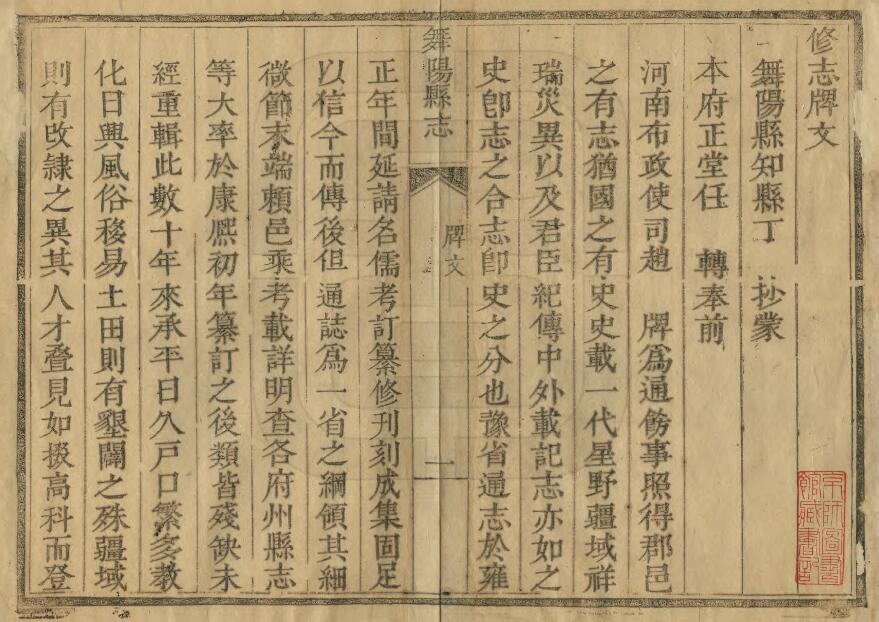 修志牌文
舞陽縣知縣丁　抄蒙
本府正堂任　轉奉前
河南布政使司趙　牌爲通飭事照得郡邑
之有志猶國之有史史載一代星野疆域祥
瑞災異以及君臣紀傳中外載記志亦如之
史卽志之合志卽史之分也豫省通志於雍
舞陽縣志
牌文
一
正年間延請名儒考訂纂修刊刻成集固足
以信今而傳後但通誌爲一省之綱領其細
微節末端賴邑乘考載詳明查各府州縣志
等大率於康熙初年纂訂之後類皆殘缺未
經重輯此數十年來承平日久戶口繁多教
化日興風俗移易土田則有墾闢之殊疆域
則有改隸之異其人才疊見如掇高科而登
京師圖書
館藏書記